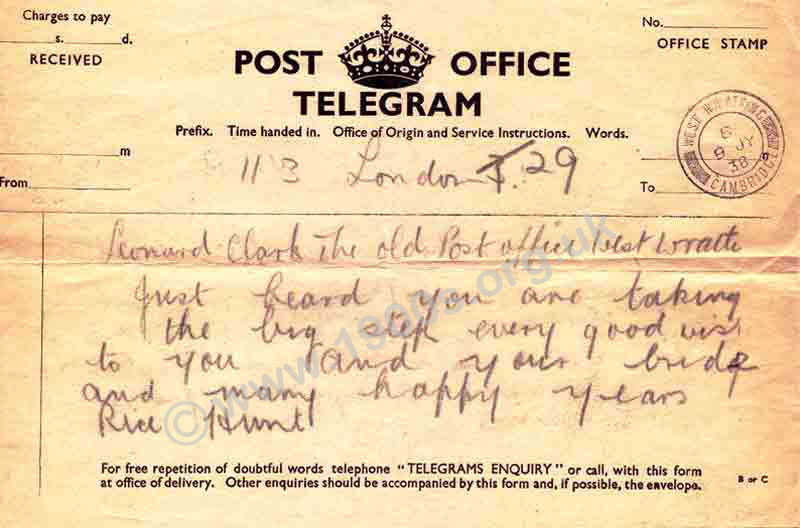 Charges to pay
s. d.
RECEIVED
No.
OFFICE STAMP
POST OFFICE
TELEGRAM
Prefix. Time handed in. Office of Origin and Service Instructions. Words.
m
From
To
11 3 London T. 29
WEST WRATTING
8 JY
38
CAMBRIDGE
Leonard Clark The old Post office West Wratt
Just heard you are taking
the big step every good wish
to you and your bride
and many happy years
Rice Hunt
© www.1900s.org.uk
For free repetition of doubtful words telephone "TELEGRAMS ENQUIRY" or call, with this form
at office of delivery. Other enquiries should be accompanied by this form and, if possible, the envelope.
B or C